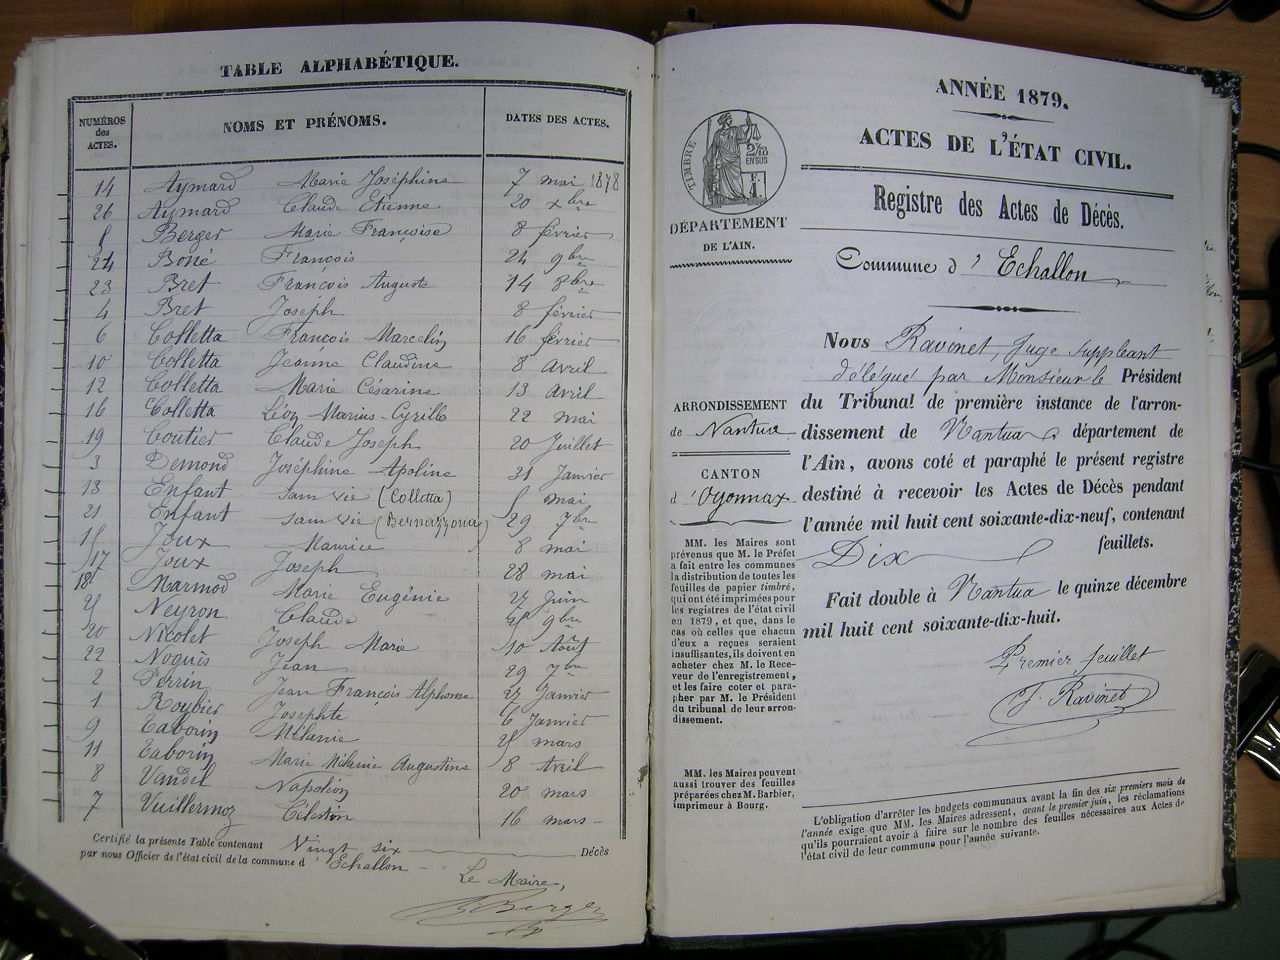 TABLE ALPHABÉTIQUE.
NUMÉROS des ACTES. NOMS ET PRÉNOMS. DATES DES ACTES.
14 Aymard Marie Joséphine 7 mai 1878
26 Aymard Claude Etienne 20 xbre
5 Berger Marie Françoise 8 février
24 Boné François 24 9bre
23 Bret François Auguste 14 8bre
4 Bret Joseph 8 février
6 Colletta François Marcelin 16 février
10 Colletta Jeanne Claudine 8 Avril
12 Colletta Marie Césarine 13 Avril
16 Colletta Léon Marius Cyrille 22 mai
19 Coutier Claude Joseph 20 Juillet
3 Demond Joséphine Apoline 31 Janvier
13 Enfant sans vie (Colletta) 5 mai
21 Enfant sans vie (Bernazzona) 29 7bre
15 Joux Maurice 8 mai
17 Joux Joseph 28 mai
18 Marmod Marie Eugénie 27 Juin
25 Neyron Claude 9bre
20 Nicolet Joseph Marie 10 Août
22 Noguès Jean 29 7bre
2 Perrin Jean François Alphonse 27 Janvier
1 Roybier Josephte 6 Janvier
9 Taborin Mélanie 25 mars
11 Taborin Marie Mélanie Augustine 8 Avril
8 Vandel Napoléon 20 mars
7 Vuillermoz Célestin 16 mars
Certifié la présente Table contenant Vingt six Décès
par nous Officier de l'état civil de la commune d'Echallon
Le Maire,
Berger
ANNÉE 1879.
ACTES DE L'ÉTAT CIVIL.
Registre des Actes de Décès.
Commune d'Echallon
TIMBRE
2/10
EN SUS
DÉPARTEMENT
DE L'AIN.
ARRONDISSEMENT
de Nantua
CANTON
d'Oyonnax
MM. les Maires sont
prévenus que M. le Préfet
a fait entre les communes
la distribution de toutes les
feuilles de papier timbré,
qui ont été imprimées pour
les registres de l'état civil
en 1879, et que, dans le
cas où celles que chacun
d'eux a reçues seraient
insuffisantes, ils doivent en
acheter chez M. le Rece-
veur de l'enregistrement,
et les faire coter et para-
pher par M. le Président
du tribunal de leur arron-
dissement.
MM. les Maires peuvent
aussi trouver des feuilles
préparées chez M. Barbier,
imprimeur à Bourg.
Nous Ravinet, Juge Suppléant
délégué par Monsieur le Président
du Tribunal de première instance de l'arron-
dissement de Nantua département de
l'Ain, avons coté et paraphé le présent registre
destiné à recevoir les Actes de Décès pendant
l'année mil huit cent soixante-dix-neuf, contenant
Dix feuillets.
Fait double à Nantua le quinze décembre
mil huit cent soixante-dix-huit.
Premier feuillet
J. Ravinet
L'obligation d'arrêter les budgets communaux avant la fin des six premiers mois de
l'année exige que MM. les Maires adressent, avant le premier juin, les réclamations
qu'ils pourraient avoir à faire sur le nombre des feuilles nécessaires aux Actes de
l'état civil de leur commune pour l'année suivante.